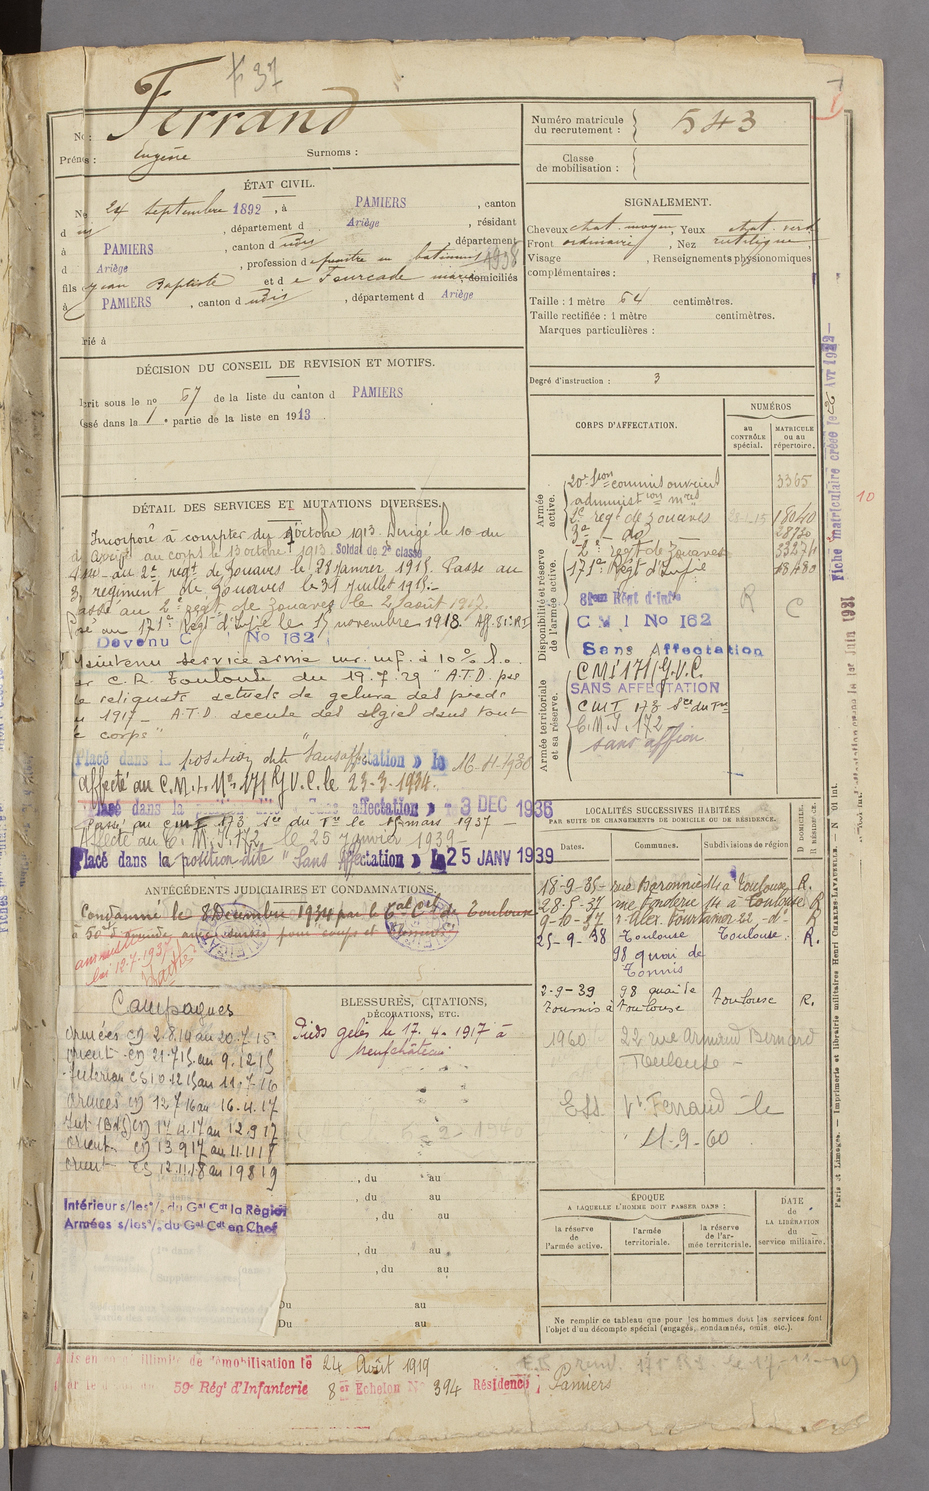 637
Ferrand
Nom :
Prénoms : Eugène Surnoms :
ÉTAT CIVIL.
Né 24 septembre 1892, à PAMIERS, canton
dudit, département d Ariège, résidant
à PAMIERS, canton dudit, département
d Ariège, profession de peintre en batiment 1938
fils de Jean Baptiste et de Fourcade domiciliés
à PAMIERS, canton dudit, département d Ariège
rié à
DÉCISION DU CONSEIL DE REVISION ET MOTIFS.
crit sous le no 67 de la liste du canton d PAMIERS
ssé dans la 1e partie de la liste en 1913.
DÉTAIL DES SERVICES ET MUTATIONS DIVERSES.
Incorporé à compter du octobre 1913 Dirigé le 10 du
au corps le 13 octobre 1913. Soldat de 2e classe
au 2e régt de zouaves le 28 janvier 1915. Passe au
3e régiment de zouaves le 31 juillet 1915.
assé au 2e régt de zouaves le 2 août 1917.
au 171e Régt d'Infie le 17 novembre 1918. Aff. 81e R.I
Devenu C No 162
Maintenu service armé inf. à 10%
C.R. Toulouse du 19.7.29 "A.T.D. pas
reliquats actuels de gelure des pieds
1917 - A.T.D. dans tout
corps"
Placé dans la position dite "Sans affectation" le 16-4-1930
Affecté au C.M.I. No 171 R/G.V.C. le 23-3-1934.
Placé dans la affectation » 3 DEC 1936
Passé au CMI 173 du Tn le mars 1937 -
Affecté au C.M.I. 172 le 25 janvier 1939 -
Placé dans la position dite "Sans Affectation » le 25 JANV 1939
ANTÉCÉDENTS JUDICIAIRES ET CONDAMNATIONS.
Condamné le 8 Décembre 1934 par le de Toulouse
à 50f d'amende avec sursis pour coups et
amnistié
loi 12-7-1937
Campagnes
Armées CD 2.8.14 au 20.7.15
Orient CD 21.7.15 au 9.12.15
Intérieur CS 10.12.15 au 11.7.16
Armées CD 12.7.16 au 16.4.17
Int (B4G) CD 17.4.17 au 12.9.17
Orient CD 13.9.17 au 11.11.18
Orient CS 12.11.18 au 19.8.19
Intérieur s/les o/. du Gal Cdt la Région
Armées s/les o/. du Gal Cdt en Chef
BLESSURES, CITATIONS,
DÉCORATIONS, ETC.
Pieds gelés le 17.4.1917 à
Neufchâteau
, du au
, du au
, du au
, du au
Du au
Du au
Numéro matricule
du recrutement : 543
Classe
de mobilisation :
SIGNALEMENT.
Cheveux chat. moyen, Yeux chat. verd
Front ordinaire, Nez rectiligne
Visage , Renseignements physionomiques
complémentaires :
Taille : 1 mètre 64 centimètres.
Taille rectifiée : 1 mètre centimètres.
Marques particulières :
Degré d'instruction : 3
CORPS D'AFFECTATION.
NUMÉROS
au
CONTRÔLE
spécial.
MATRICULE
ou au
répertoire.
Armée active.
20e son commis ouvriers 3365
administron mres
2e régt de zouaves 18040
3e - do 28730
Disponibilité et réserve de l'armée active.
2e régt de Zouaves 33274
171e Régt d'Infie 18480
81eme Régt d'Infie R C
C M I No 162
Sans Affectation
Armée territoriale et sa réserve.
CMI 171/G.V.C.
SANS AFFECTATION
CMI 173 du Tn
C.M.I. 172
sans affion
LOCALITÉS SUCCESSIVES HABITÉES
PAR SUITE DE CHANGEMENTS DE DOMICILE OU DE RÉSIDENCE.
Dates. Communes. Subdivisions de région
D. DOMICILE.
R. RÉSIDENCE.
18-9-35- rue Baronnie 14 à Toulouse R.
28-5-37 rue Fonderie 14 à Toulouse R
9-10-37 r. Alex. Fourtanier 22, -do- R
25-9-38 Toulouse Toulouse R.
98 quai de
Tounis
2-9-39 98 quai de
Tounis à Toulouse Toulouse R.
1960 22 rue Armand Bernard
Toulouse -
Ferrand le
11-9-60
ÉPOQUE
A LAQUELLE L'HOMME DOIT PASSER DANS :
la réserve
de
l'armée active.
l'armée
territoriale.
la réserve
de l'ar-
mée territoriale.
DATE
de
LA LIBÉRATION
du
service militaire.
Ne remplir ce tableau que pour les hommes dont les services font
l'objet d'un décompte spécial (engagés, condamnés, omis, etc.).
is en congé illimité de démobilisation le 24 Août 1919
59e Régt d'Infanterie 8er Echelon No 394 Résidence : Pamiers
Fiche matriculaire créée le Avr 1922
10
Paris et Limoges. — Imprimerie et librairie militaires Henri CHARLES-LAVAUZELLE. — N. 01 int.